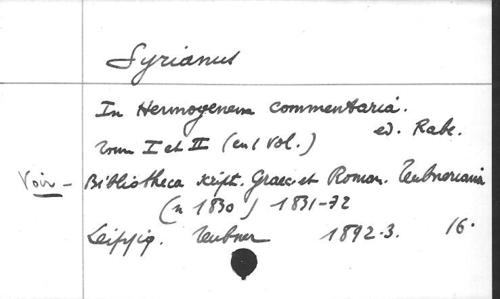 Syrianus
In Hermogenem commentaria.
ed. Rabe.
Tom I et II (en 1 vol.)
Voir - Bibliotheca script. Graec. et Roman. Teubneriana
(n 1830) 1831-72
Leipzig. Teubner 1892-3. 16.